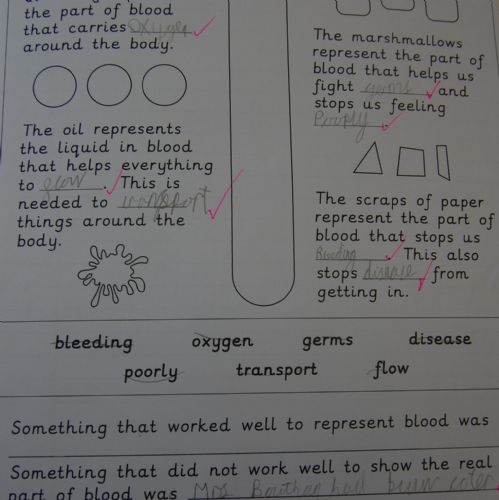 the part of blood
that carries oxygen
around the body.
The oil represents
the liquid in blood
that helps everything
to flow. This is
needed to transport
things around the
body.
The marshmallows
represent the part of
blood that helps us
fight germs and
stops us feeling
Poorly
The scraps of paper
represent the part of
blood that stops us
Bleeding. This also
stops disease from
getting in.
bleeding oxygen germs disease
poorly transport flow
Something that worked well to represent blood was
Something that did not work well to show the real
part of blood was Mrs had